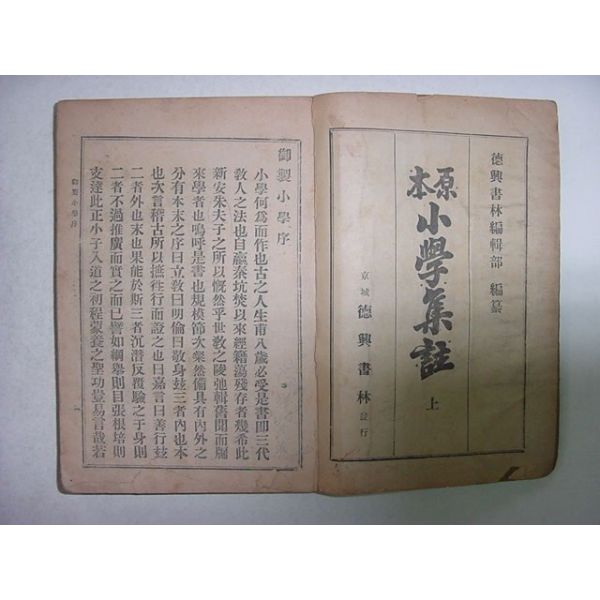 德興書林編輯部 編纂
原本
小學集註
上
京城 德興書林 發行
御製小學序
小學何爲而作也古之人生甫八歲必受是書卽三代
敎人之法也自嬴秦坑焚以來經籍蕩殘存者幾希此
新安朱夫子之所以慨然乎世敎之陵弛輯舊聞而牖
來學者也嗚呼是書也規模節次粲然備具有內外之
分有本末之序曰立敎曰明倫曰敬身玆三者內也本
也次言稽古所以摭往行而證之也曰嘉言曰善行玆
二者外也末也果能於斯三者沉潛反覆驗之于身則
二者不過推廣而實之而已譬如綱擧則目張根培則
支達此正小子入道之初程蒙養之聖功豈易言哉若
御製小學序